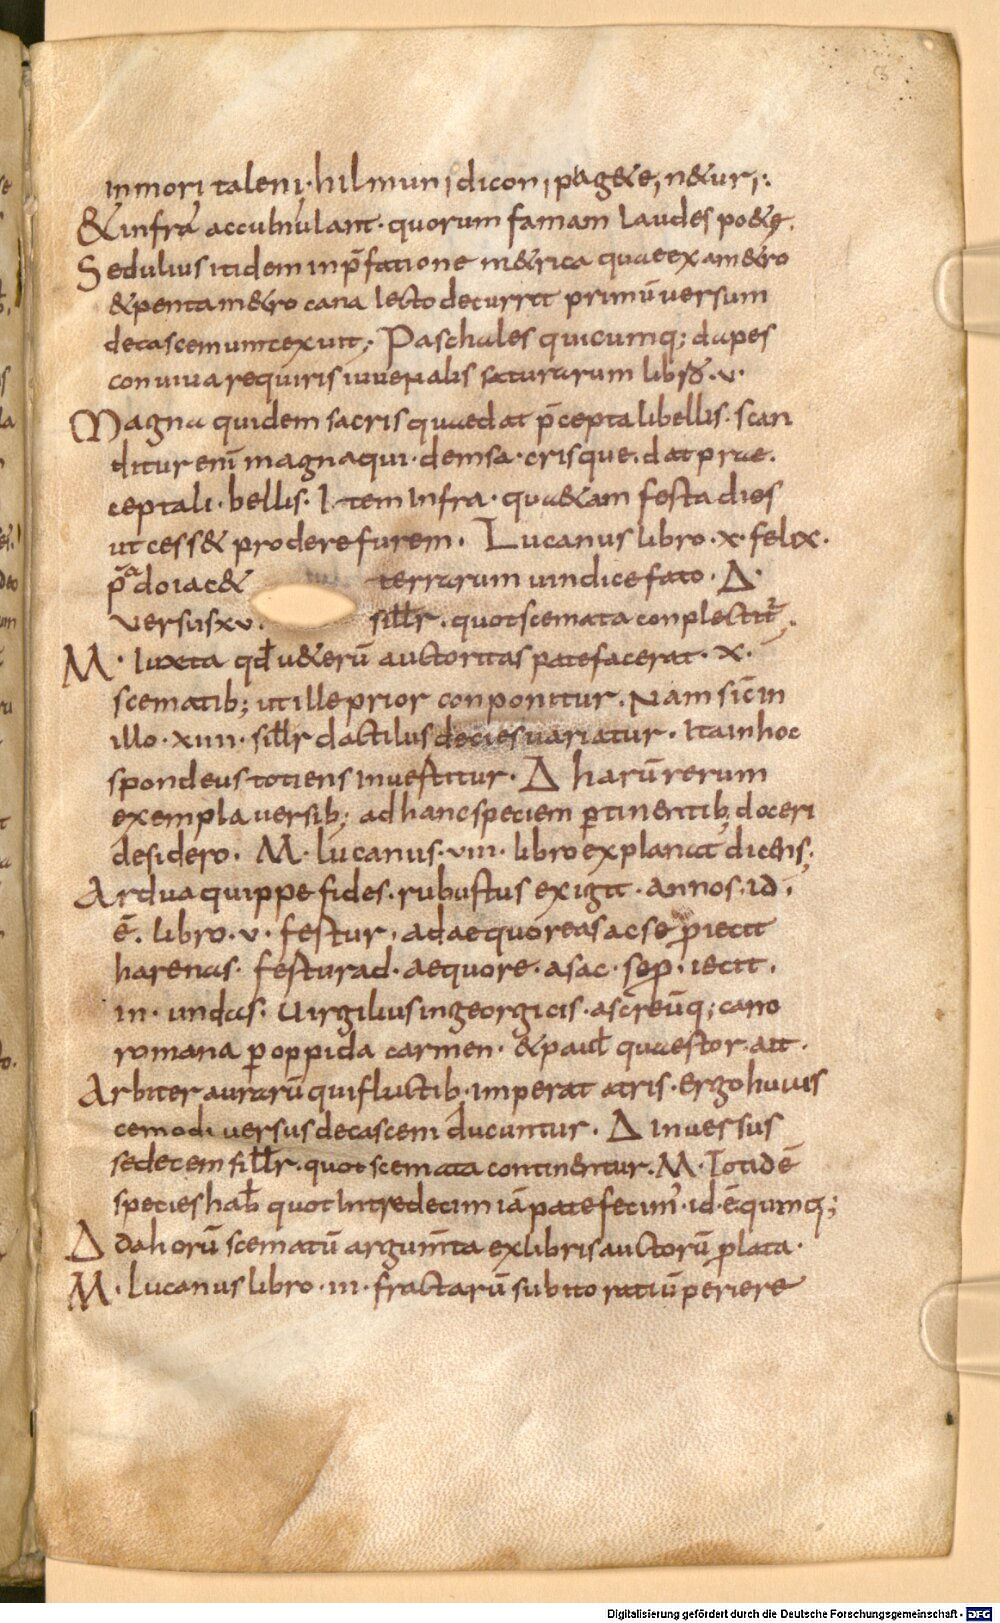 inmori taleni· hil muni dicon i pag&e, n&uri:
&infra accubitulant· quorum famam laudes po&ę.
Sedulius itidem in p̄fatione m&rica quae exam&ro
&pentam&ro cata lecto decurrit primū versum
decascemum texuit; Paschales quicumq; dapes
conuiua requiris iuuenalis saturarum libr̄. v·
Magna quidem sacris quae dat p̄cepta libellis· scan
ditur enī magnaqui· demsa· crisque. dat prae.
ceptali· bellis· Item infra· qua&iam festa dies
ut cess& prodere furem. Lucanus libro· x· felix.
p̄doiac& terrarum uindice fato· Δ·
versus xv. sillr. quot scemata conplectit̄.
M· Iuxta qđ u&erū auctoritas patefacerat· x·
scematib; ut ille prior conponitur. Nam sic̄ in
illo· xiiii· sillr dactilus decies uariatur. Ita in hoc
spondeus totiens inuestitur. Δ harū rerum
exempla versib; ad hanc speciem ꝑtinentib; doceri
desidero. M· lucanus· viii· libro explanat dicens;
Ardua quippe fides. rubustus exigit· annos. id·
ē. libro· v· festur, ad aequoreas ac se proiecit
harenas· festurad· aequore· asac· sepro· iecit.
in· undas· uirgilius in georgicis· ascreūq; cano
romana ꝑ oppida carmen· & paul̄ quaestor· ait·
Arbiter aurarū qui fluctib; imperat atris· Ergo huius
cemodi versus decasceni ducuntur· Δ in uersus
sedecem sillr· quot scemata continentur. M· Totidē
species hab̄ quot in tredecim iā patefecim'· id· ē quinq;
Δ da horū scematū argum̄ta ex libris auctorū prolata·
M· lucanus libro· iii· fractarū subito ratiū periere
Digitalisierung gefördert durch die Deutsche Forschungsgemeinschaft - DFG